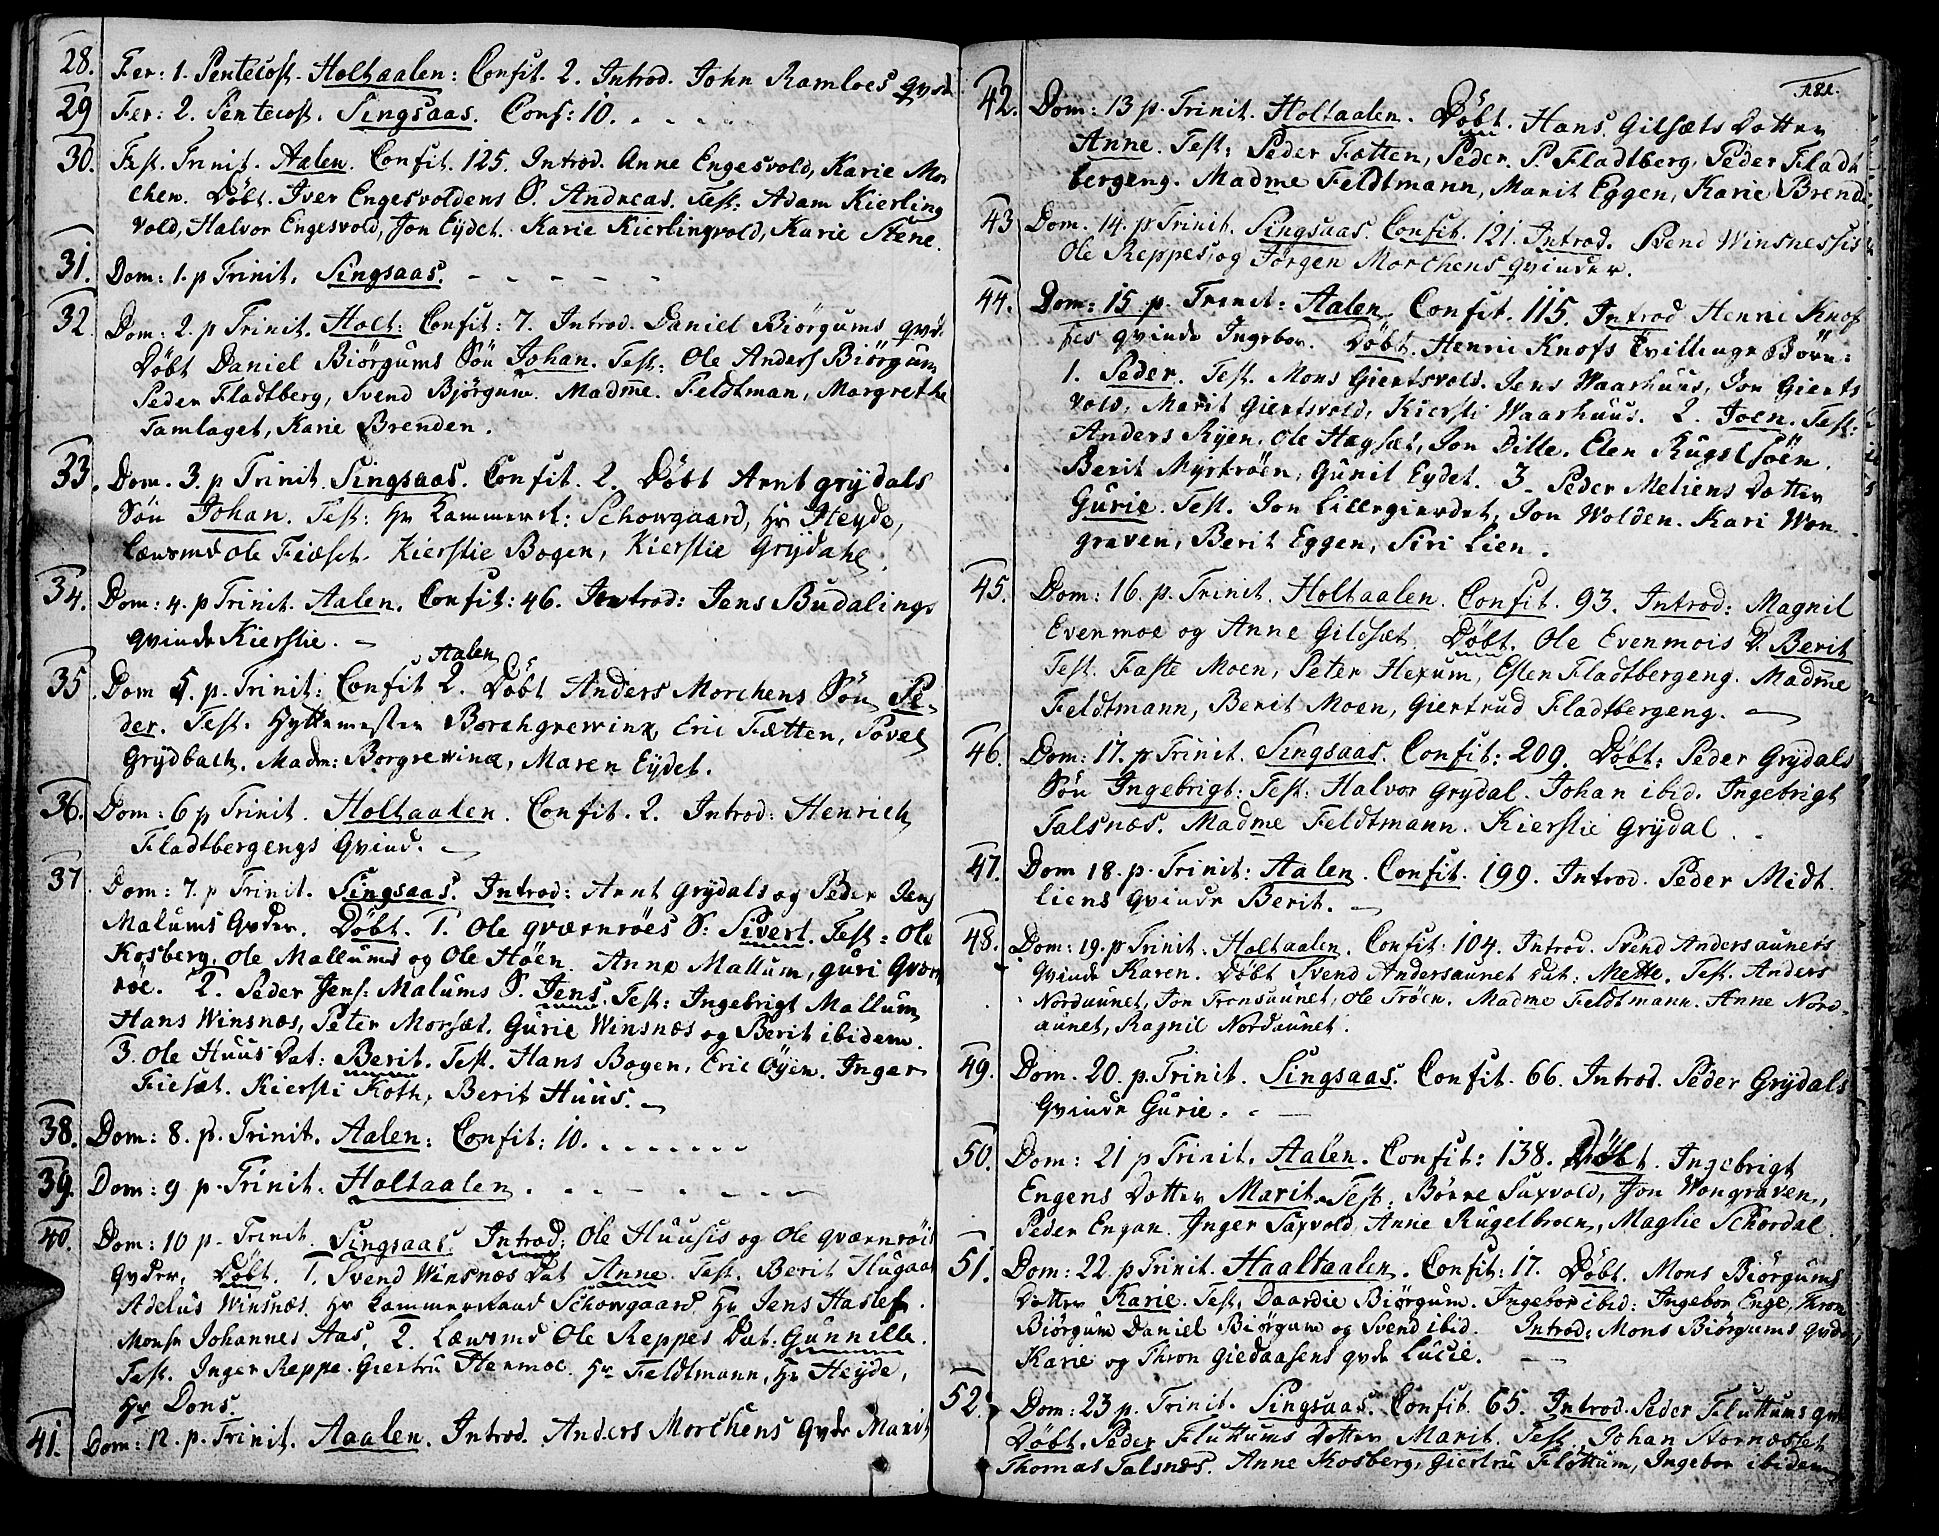 28. Fer: 1. Pentecost. Holtaalen: Confit. 2. Introd. John Ramloes qvinde
29 Fer: 2. Pentecost. Singsaas. Conf: 10.
30. Fest. Trinit. Aalen. Confit. 125. Introd. Anne Engesvold, Karie Mor
chen. Döbt. Iver Engesvoldens S. Andreas. Test: Adam Kierling
vold, Halvor Engesvold, Jon Eydet. Karie Kierlingvold, Karie Stene.
31. Dom: 1. p Trinit. Singsaas.
32 Dom: 2. p Trinit. Holt: Confit: 7. Introd. Daniel Biörgums qvd.
Döbt Daniel Biörgums Sön Johan. Test: Ole Anders Biörgum
Peder Fladtberg, Svend Bjørgum. Madme. Feldtman, Margrethe
Tamlaget, Karie Brenden.
33. Dom. 3. p Trinit. Singsaas. Confit. 2. Döbt Arnt Grÿdals
Sön Johan. Test: Hr Kammerd: Schowgaard, Hr Heyde,
Lænsmd Ole Fiæset. Kierstie Bogen, Kierstie Grÿdahl.
34. Dom: 4. p Trinit. Aalen. Confit: 46. Introd: Jens Budalings
qvinde Kierstie.
Aalen
35. Dom 5. p. Trinit: Confit 2. Döbt Anders Morchens Sön Pe-
der. Test. Hyttemester Borchgrewinx, Eric Fætten, Povel
Grÿdbach. Madm: Borgrewinx, Maren Eÿdet.
36. Dom: 6 p Trinit. Holtaalen. Confit. 2. Introd: Henrich
Fladtbergengs Qvind.
37 Dom: 7. p Trinit. Singsaas. Introd: Arnt Grÿdals og Peder Jens
Malums Qvder. Döbt. 1. Ole Qværnröes S: Sivert. Test: Ole
Kosberg, Ole Mallums og Ole Höen. Anne Mallum, Guri Qvern
röe. 2. Peder Jens: Malums S. Jens. Test: Ingebrigt Mallum,
Hans Winsnæs, Peter Morsæt. Gurie Winsnæs og Berit ibidem.
3. Ole Huus Dat: Berit. Test. Hans Bogen, Eric Öyen. Inger
Fiesæt. Kiersti Koth, Berit Huus.
38. Dom: 8. p. Trinit. Aalen: Confit: 10.
39. Dom: 9 p. Trinit. Holtaalen.
40. Dom: 10 p. Trinit. Singsaas. Introd: Ole Huusis og Ole Qværnröis
Qvder. Döbt. 1. Svend Winsnæs Dat Anne. Test. Berit Hugaas
Adelus Winsnæs. Hr Kammerraad Schowgaard. Hr Jens Haslef.
Monsr Johannes Aas. 2. Lænsmd Ole Reppes Dat: Gunnille.
Test. Inger Reppe. Giertru Henmoe. Hr Feldtmann, Hr Heÿde,
Hr Dons.
41. Dom: 12. p. Trinit. Aaalen. Introd. Anders Morchens Qvde Marit
121.
42. Dom: 13 p. Trinit. Holtaalen. Döbt. Hans Gilsæts Dotter
Anne. Test: Peder Fætten, Peder. P. Fladtberg, Peder Fladt
bergeng. Madme Feldtmann, Marit Eggen, Karie Brende
43 Dom. 14. p Trinit. Singsaas. Confit. 121. Introd. Svend Winsnessis
Ole Reppes, og Jörgen Morchens qvinder.
44. Dom: 15 p. Trinit: Aalen. Confit. 115. Introd Henric Knof
fes qvinde Ingebor. Döbt. Henric Knofs Tvillinge Börn:
1. Peder. Test. Mons Giertsvold. Jens Waarhuus, Jon Gierts
vold, Marit Giertsvold, Kiersti Waarhuus. 2. Joen. Test:
Anders Rÿen, Ole Hagsæt, Jon Dille. Elen Rugelsöen.
Berit Mÿrröen, Gunil Eÿdet. 3. Peder Meliens Dotter
Gurie. Test. Jon Lillegierdet, Jon Wolden. Kari Won
graven, Berit Eggen, Siri Lien.
45. Dom: 16. p. Trinit. Holtaalen. Confit. 93. Introd: Magnil
Evenmoe og Anne Gildsæt. Döbt. Ole Evenmois D. Berit
Test. Faste Moen, Peter Hexum, Esten Fladtbergeng. Madme
Feldtmann, Berit Moen, Giertrud Fladtbergeng.
46. Dom: 17. p Trinit. Singsaas. Confit: 209. Döbt: Peder Grÿdals
Sön Ingebrigt: Test: Halvor Grydal. Johan ibid. Ingebrigt
Talsnæs. Madme Feldtmann. Kierstie Grÿdal.
47. Dom 18. p. Trinit: Aalen. Confit. 199. Introd. Peder Midt
liens Qvinde Berit.
48. Dom: 19. p Trinit. Holtaalen. Confit: 104. Introd. Svend Andersaunets
Qvinde Karen. Döbt Svend Andersaunet Dat: Mette. Test. Anders
Nordaunet, Jon Svensaunet, Ole Tröen. Madme Feldtmann. Anne Nord-
aunet, Ragnil Nordaunet.
49. Dom. 20. p. Trinit. Singsaas. Confit. 66. Introd. Peder Grÿdals
Qvinde Gurie.
50. Dom: 21 p Trinit. Aalen. Confit: 138. Döbt. Ingebrigt
Engens Dotter Marit. Test. Börre Saxvold, Jon Wongraven,
Peder Engan. Inger Saxvold, Anne Rugelbroen, Maglie Schordal.
51. Dom: 22. p Trinit. Haaltaalen. Confit: 17. Döbt. Mons Biörgums
Dotter Karie. Test. Daardie Biörgum. Ingebor ibid: Ingebor Enge, Thron
Biörgum Daniel Biörgum og Svend ibid. Introd: Mons Biörgums Qvde
Karie og Thron Giedaasens qvde Lucie.
52. Dom: 23 p. Trinit. Singsaas. Confit. 65. Introd. Peder Fluttums qvd
Döbt. Peder Fluttums Dotter Marit. Test. Johan Stornæsset
Thomas Talsnes. Anne Kosberg, Giertru Flöttum, Ingebor ibidem